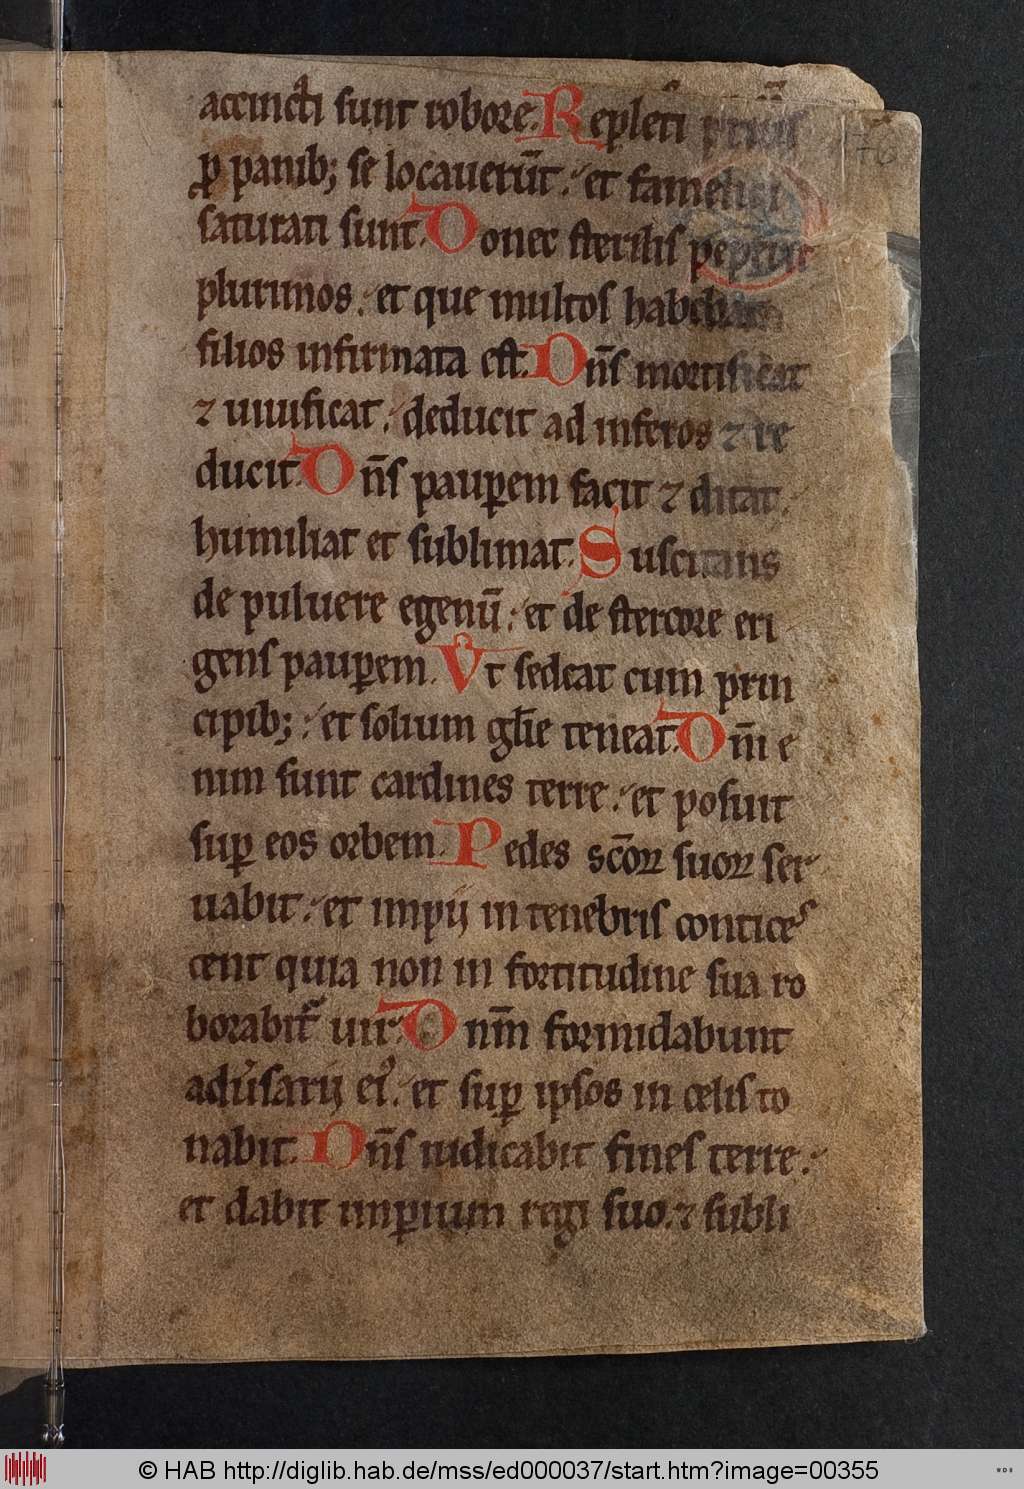 accincti sunt robore. Repleti prius
ꝓ panib; se locauerūt. et famelici
saturati sunt. Donec sterilis peperit
plurimos. et que multos habebat
filios infirmata est. Dn̄s mortificat
⁊ uiuificat. deducit ad inferos ⁊ re
ducit. Dn̄s pauꝑem facit ⁊ ditat.
humiliat et sublimat. Suscitans
de puluere egenū. et de stercore eri
gens pauꝑem. Vt sedeat cum prin
cipib; et solium gl̄ie teneat. Dn̄i e
nim sunt cardines terre. et posuit
suꝑ eos orbem. Pedes sc̄oꝝ suoꝝ ser
uabit. et impij in tenebris contices
cent quia non in fortitudine sua ro
borabit᷑ uir. Dnm̄ formidabunt
adu̾sarij ei᷒. et suꝑ ipsos in celis to
nabit. Dn̄s iudicabit fines terre.
et dabit imꝑium regi suo. ⁊ subli
176
© HAB http://diglib.hab.de/mss/ed000037/start.htm?image=00355